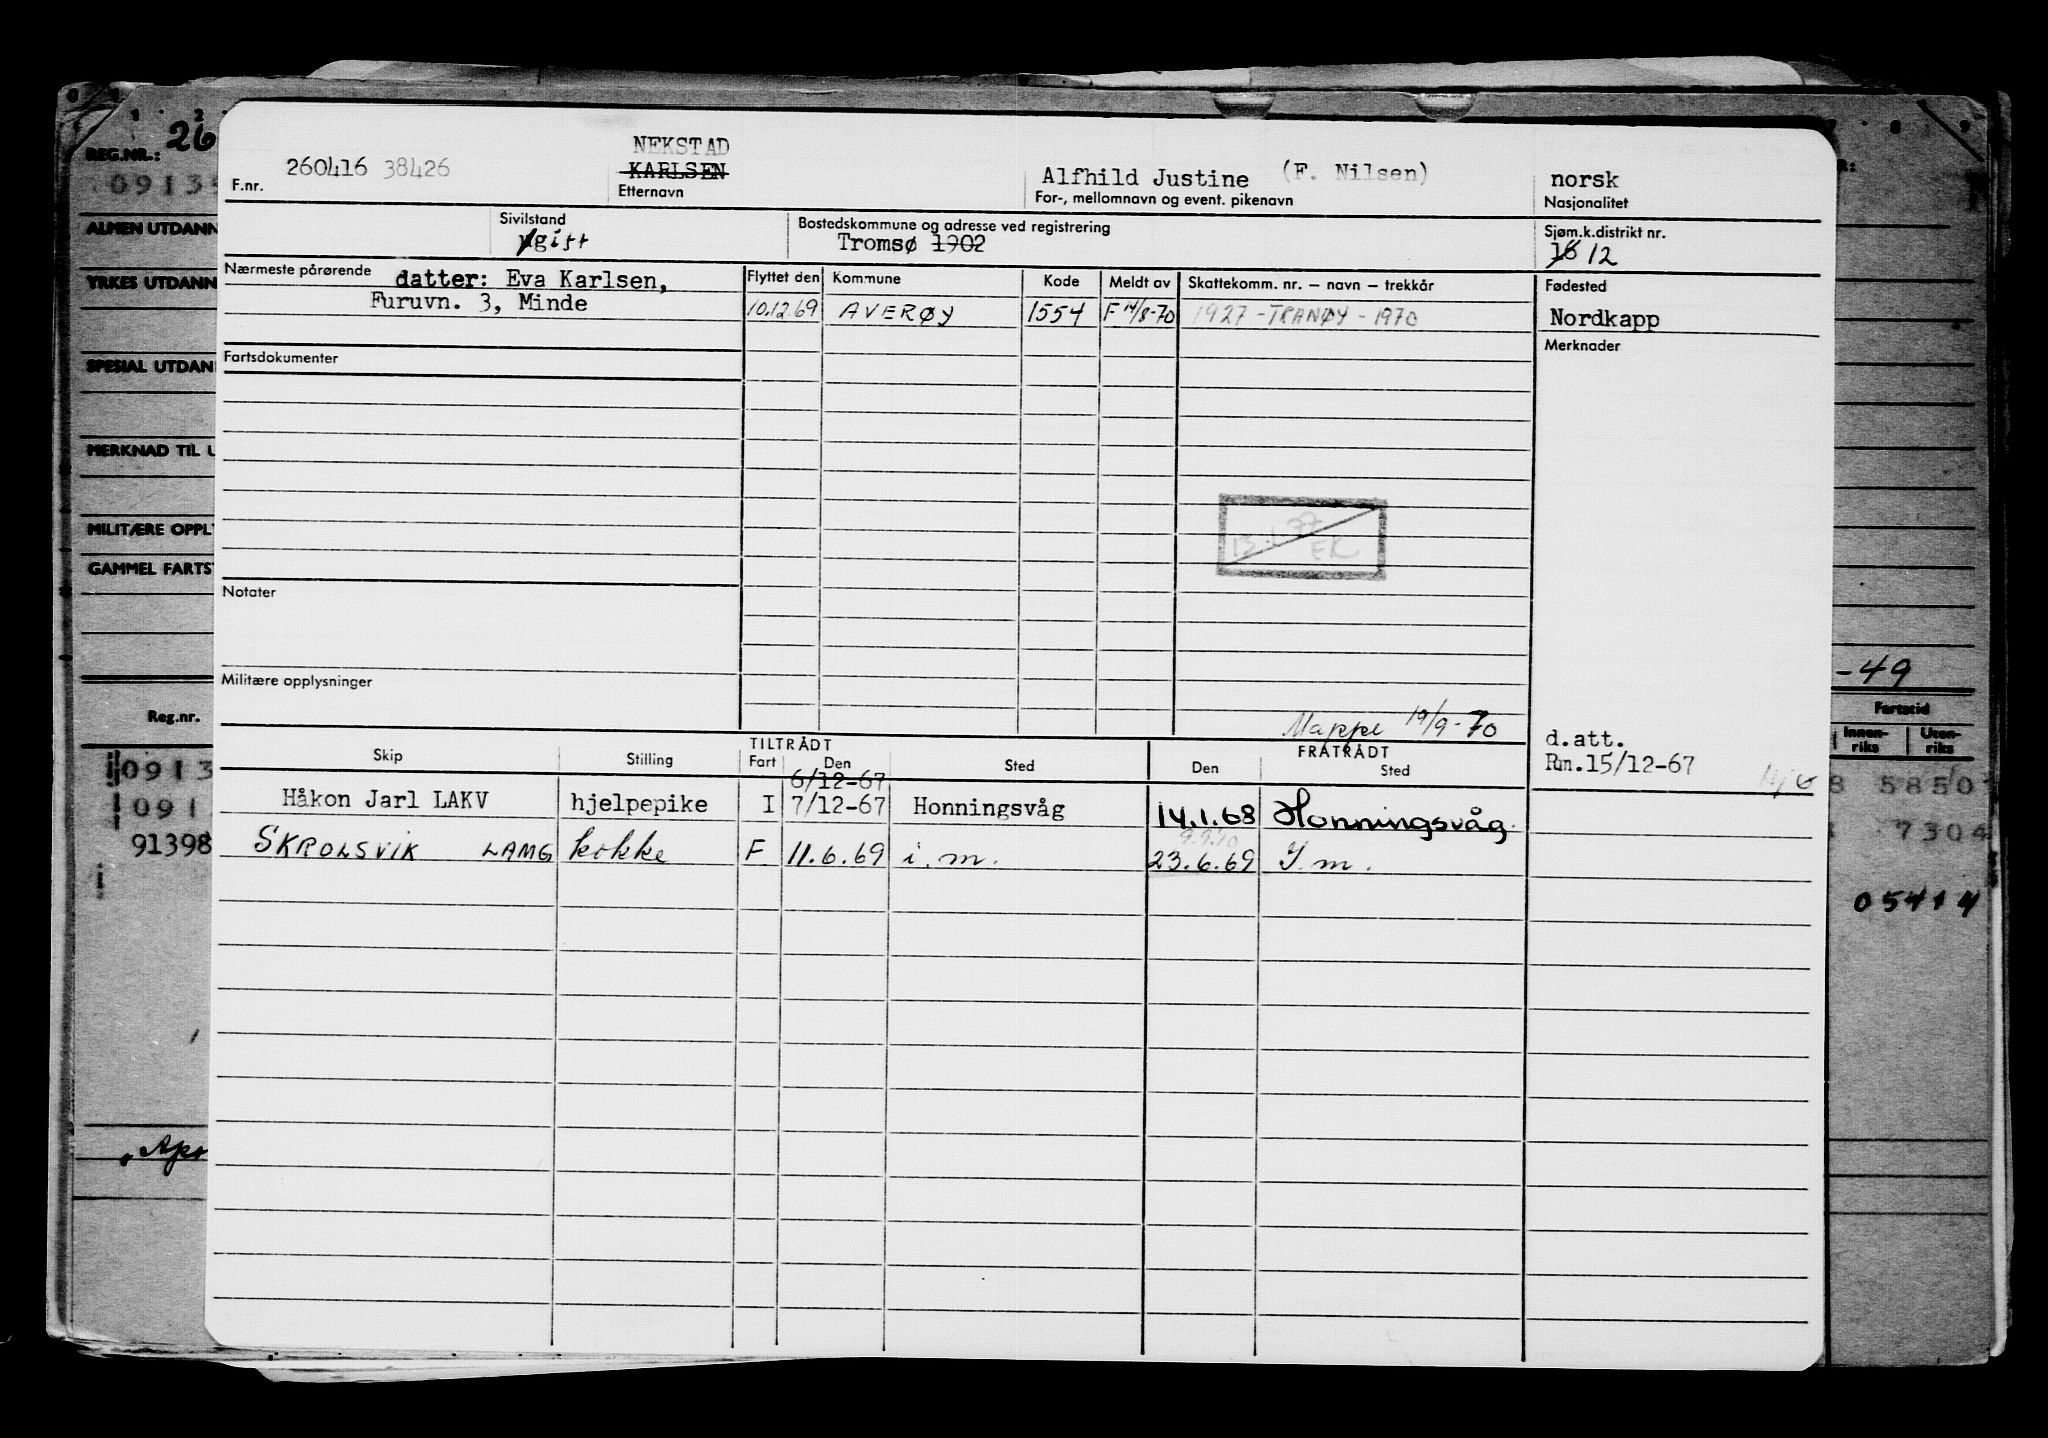 REG.NR.: 26
ALMEN UTDANN
YRKES UTDANN
SPESIAL UTDAN
MERKNAD TIL U
MILITÆRE OPPLY
GAMMEL FARTS
Reg.nr.
0913
091
91398
NEKSTAD
260416 38426 KARLSEN Alfhild Justine (F. Nilsen) norsk
F.nr. Etternavn For-, mellomnavn og event. pikenavn Nasjonalitet
Sivilstand Bostedskommune og adresse ved registrering Sjøm.k.distrikt nr.
gift Tromsø 1902 16 12
Nærmeste pårørende datter: Eva Karlsen, Flyttet den Kommune Kode Meldt av Skattekomm. nr. – navn – trekkår Fødested
Furuvn. 3, Minde 10.12.69 AVERØY 1554 F 14/8-70 1927 - TRANØY - 1970 Nordkapp
Fartsdokumenter Merknader
13.1.77
EK
Notater
Militære opplysninger
Mappe 19/9-70
d.att.
Rm.15/12-67
TILTRÅDT FRATRÅDT
Skip Stilling Fart Den Sted Den Sted
6/12-67
Håkon Jarl LAKV hjelpepike I 7/12-67 Honningsvåg 14.1.68 Honningsvåg
9.9.70
SKROLSVIK LAMG kokke F 11.6.69 i.m. 23.6.69 I.m.
-49
Fartstid
Innen-riks Uten-riks
8 5850
7304
05414